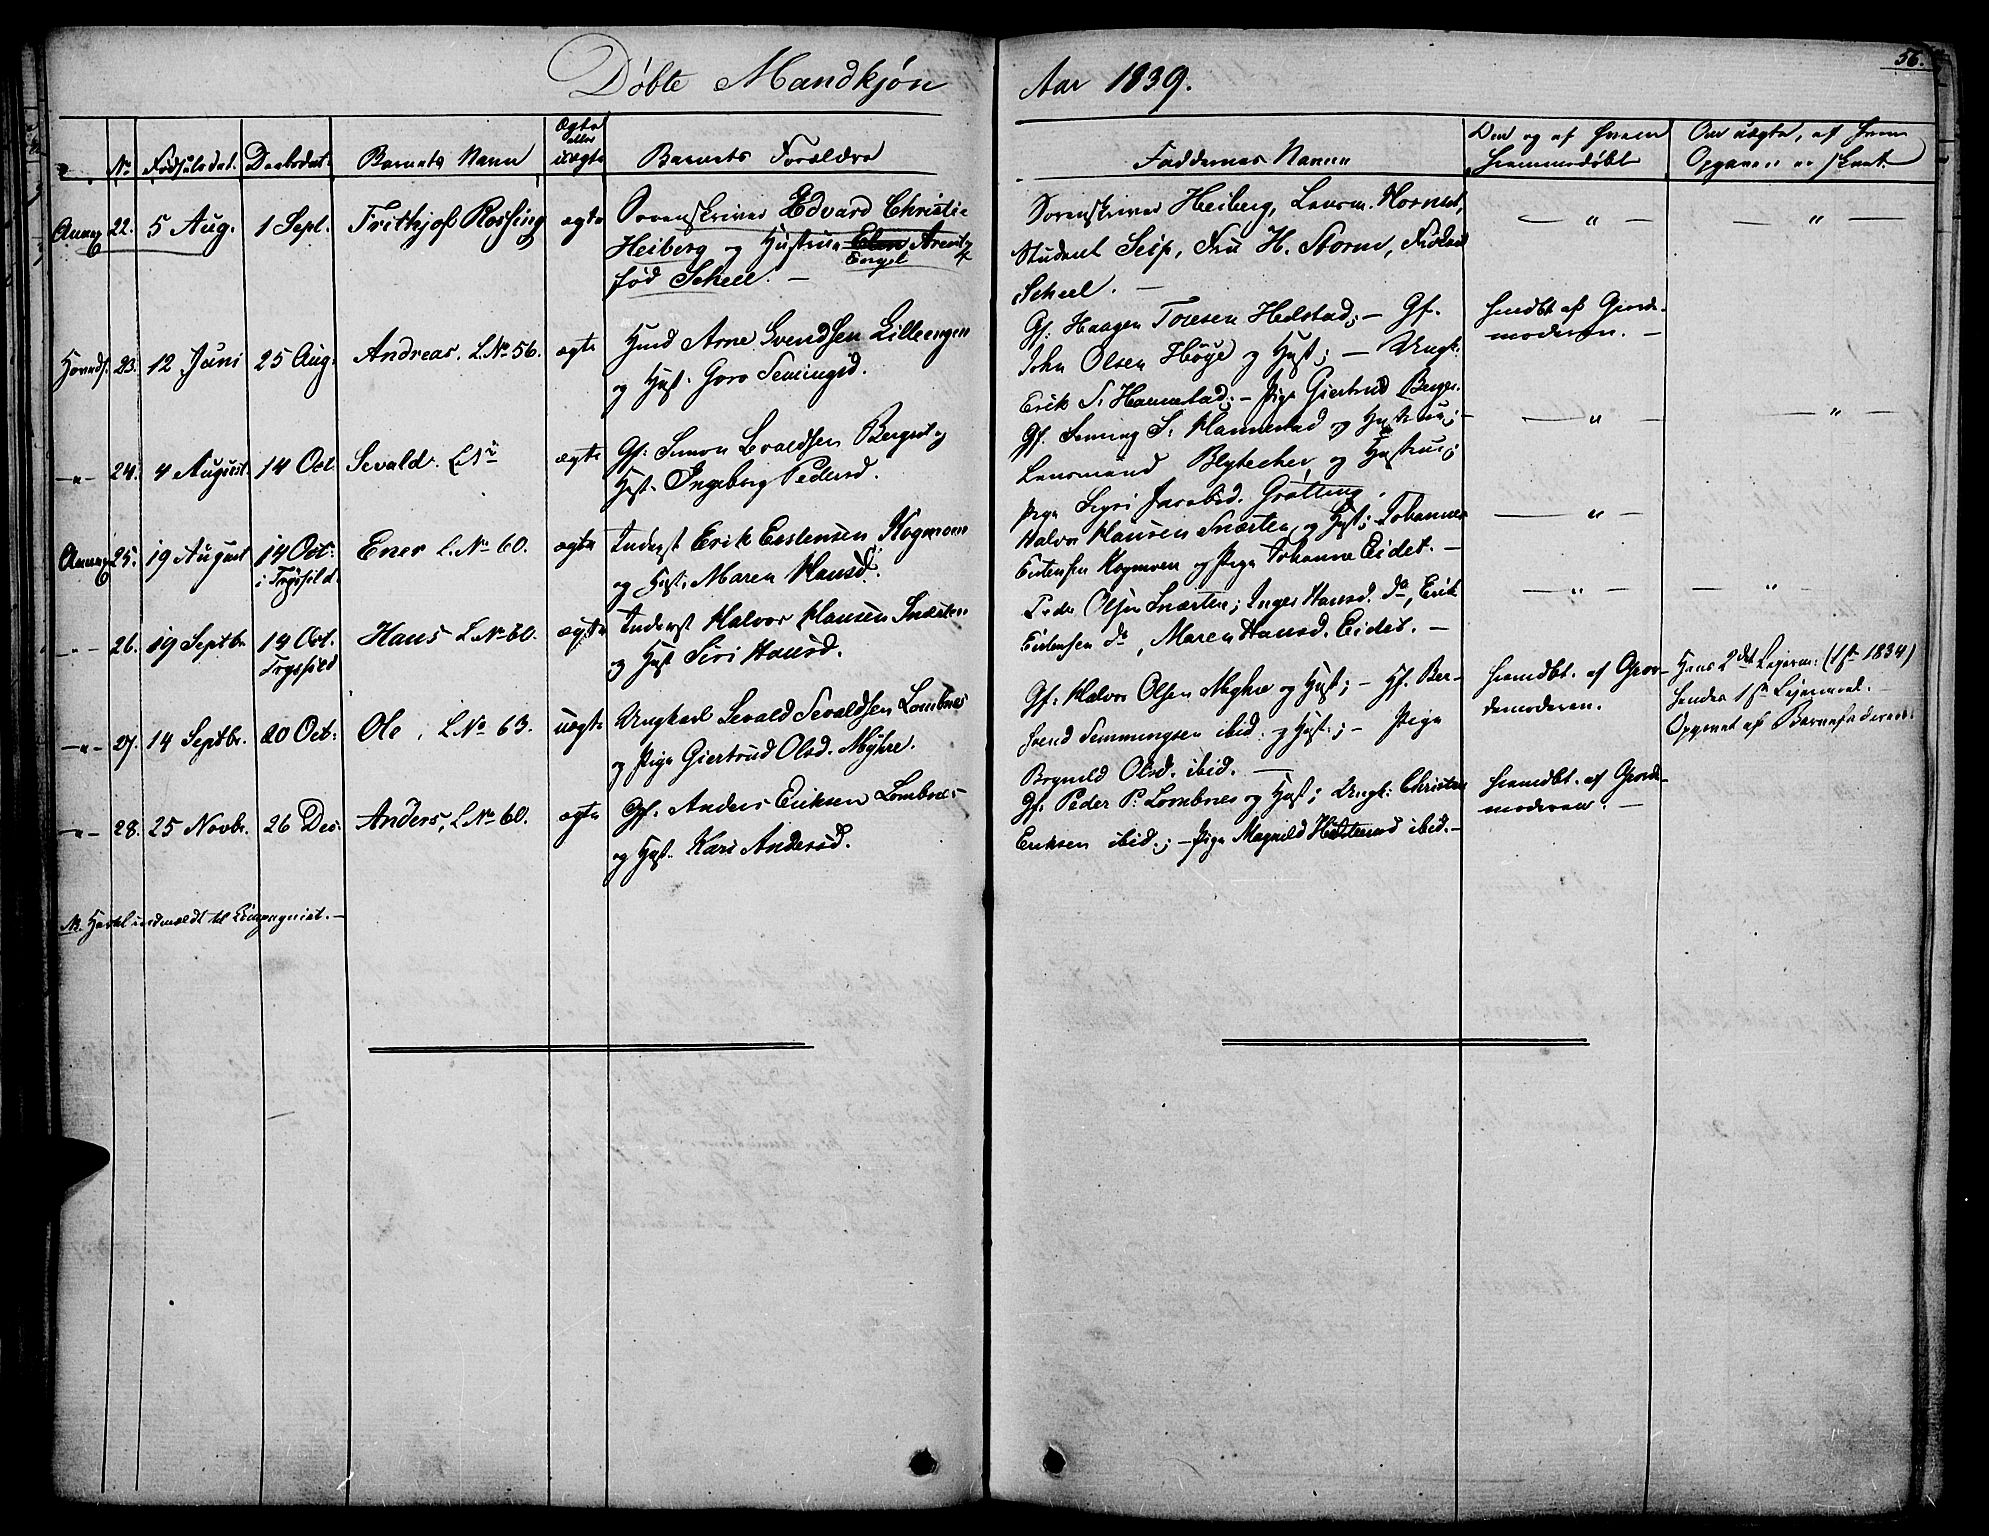 Døbte Mandkjøn
Aar 1839.
56.
No Fødselsdat. Daabsdat. Barnets Navn Ægte eller uægte Barnets Forældre Faddernes Navne Om og af hvem hjemmedøbt Om uægte, af hvem Opgaven er skeet
Annex 22. 5 Aug. 1 Sept. Frithjof Rossing ægte Sorenskriver Edvard Christie
Heiberg og Hustrue Engel Arentz
fød Scheel. —
Sorenskriver Heiberg, Lensm.
Student Seip, Fru H. Storm, Frøken
Scheel. —
— " —
— " —
Hoveds. 23. 12 Juni 25 Aug. Andreas. L. No 56. ægte Hmd Arne Svendsen Lilleengen
og Hust. Goro Semingsd.
Gf. Haagen Toresen Helstad; — Gf.
John Olsen Høye og Hust; — Ungk.
Erik S. Hannestad; — Pige Giertrud Berger.
hmdbt af Gjorde-
moderen. —
— " — 24. 4 August 14 Oct Sevald. L. No ægte Gf. Simon Sevaldsen Berget og
Hust. Ingeborg Pedersd.
Gf. Seming S. Hannestad og Hustrue; —
Lensmand Blytecher og Hustrue;
Pige Sigri Jacobsd. Grøtting.
— " —
— " —
Annex 25. 19 August 14 Oct: i Trysfild. Ener L. No 60. ægte Inderst Erik Eistensen Kogmoen
og Hust: Maren Hansd.
Halvor Hansen Snærten og Hust; Johannes
Eistensen Kogmoen og Pige Johanne Eidet. —
— " —
— " — 26. 19 Septbr. 14 Oct. Trysfild Hans L. No 60. ægte Inderst Halvor Hansen Snærten
og Hust Siri Hansd.
Peder Olsen Snærten; Inger Hansd. do, Erik
Eistensen do, Maren Hansd. Eidet. —
— " —
— " —
— " — 27. 14 Septbr. 20 Oct: Ole, L. No 63. uægte Ungkarl Sevald Sevaldsen Lombnes
og Pige Giertrud Olsd. Myhre.
Gf. Halvor Olsen Myhre og Hust; — Hf. Ber-
hend Semmingsen ibid. og Hust.; — Pige
Bognild Olsd. ibid. —
hjemdbt. af Gjor-
demoderen.
Hans 2det Leierm. (1ste 1834)
hendes 1ste Leiermaal. —
Opgivet af Barnefaderen.
— " — 28. 25 Novbr. 26 Dec. Anders, L. No 60. ægte Gf. Anders Eriksen Lombnes
og Hust. Kari Andersd.
Gf. Peder P. Lombnes og Hust; Ungk. Christen
Eriksen ibid.; — Pige Magnild ibid. —
hjemdbt. af Gjorde-
moderen. —